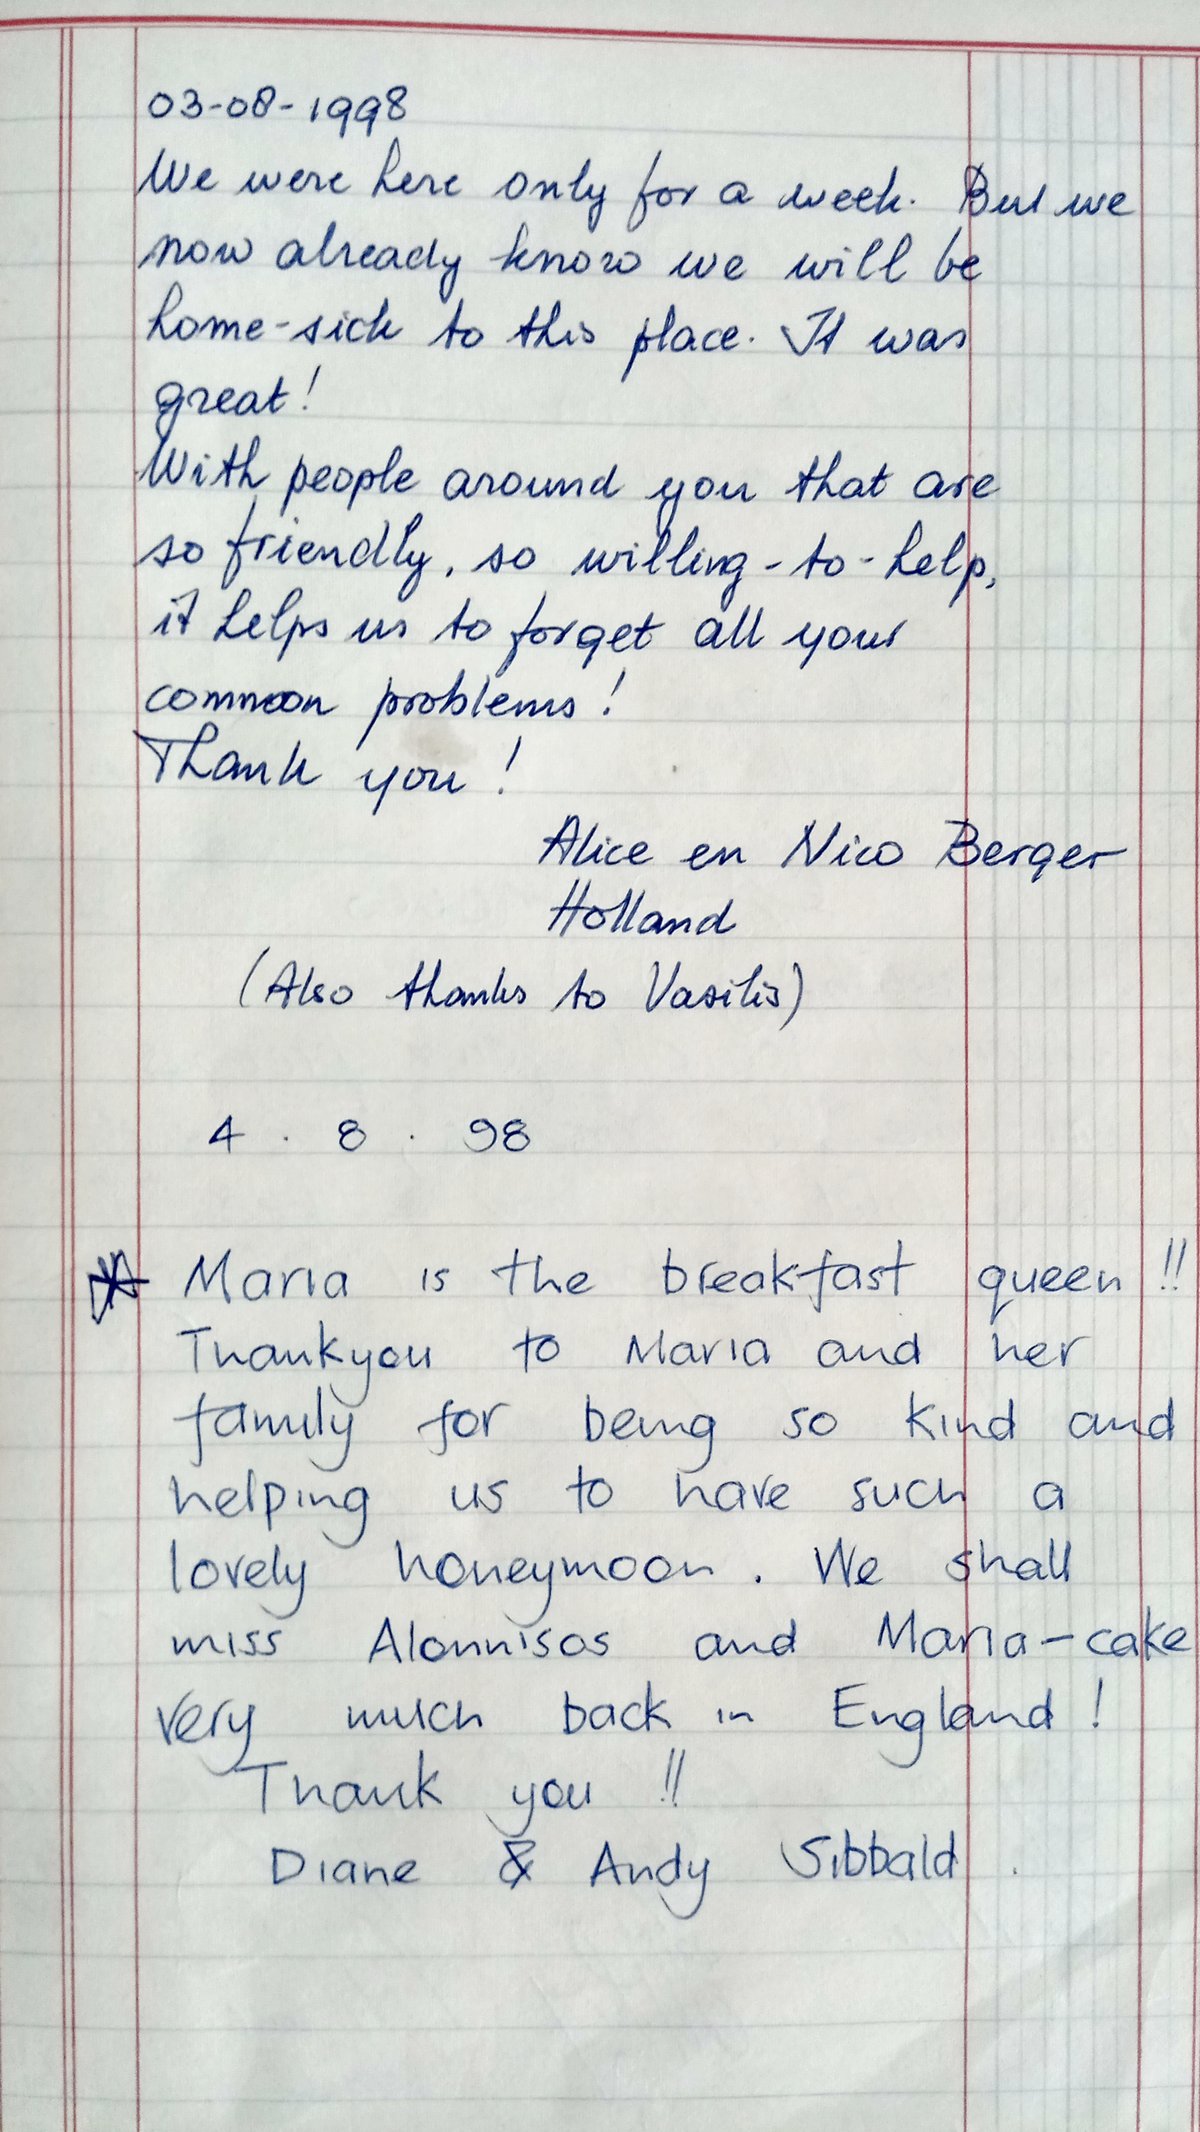 03-08-1998
We were here only for a week. But we
now already know we will be
home-sick to this place. It was
great!
With people around you that are
so friendly, so willing-to-help,
it helps us to forget all your
common problems!
Thank you!
Alice en Nico Berger
Holland
(Also thanks to Vasilis)
4 . 8 . 98
Maria is the breakfast queen!!
Thankyou to Maria and her
family for being so kind and
helping us to have such a
lovely honeymoon. We shall
miss Alonnisos and Maria-cake
very much back in England!
Thank you!!
Diane & Andy Sibbald.